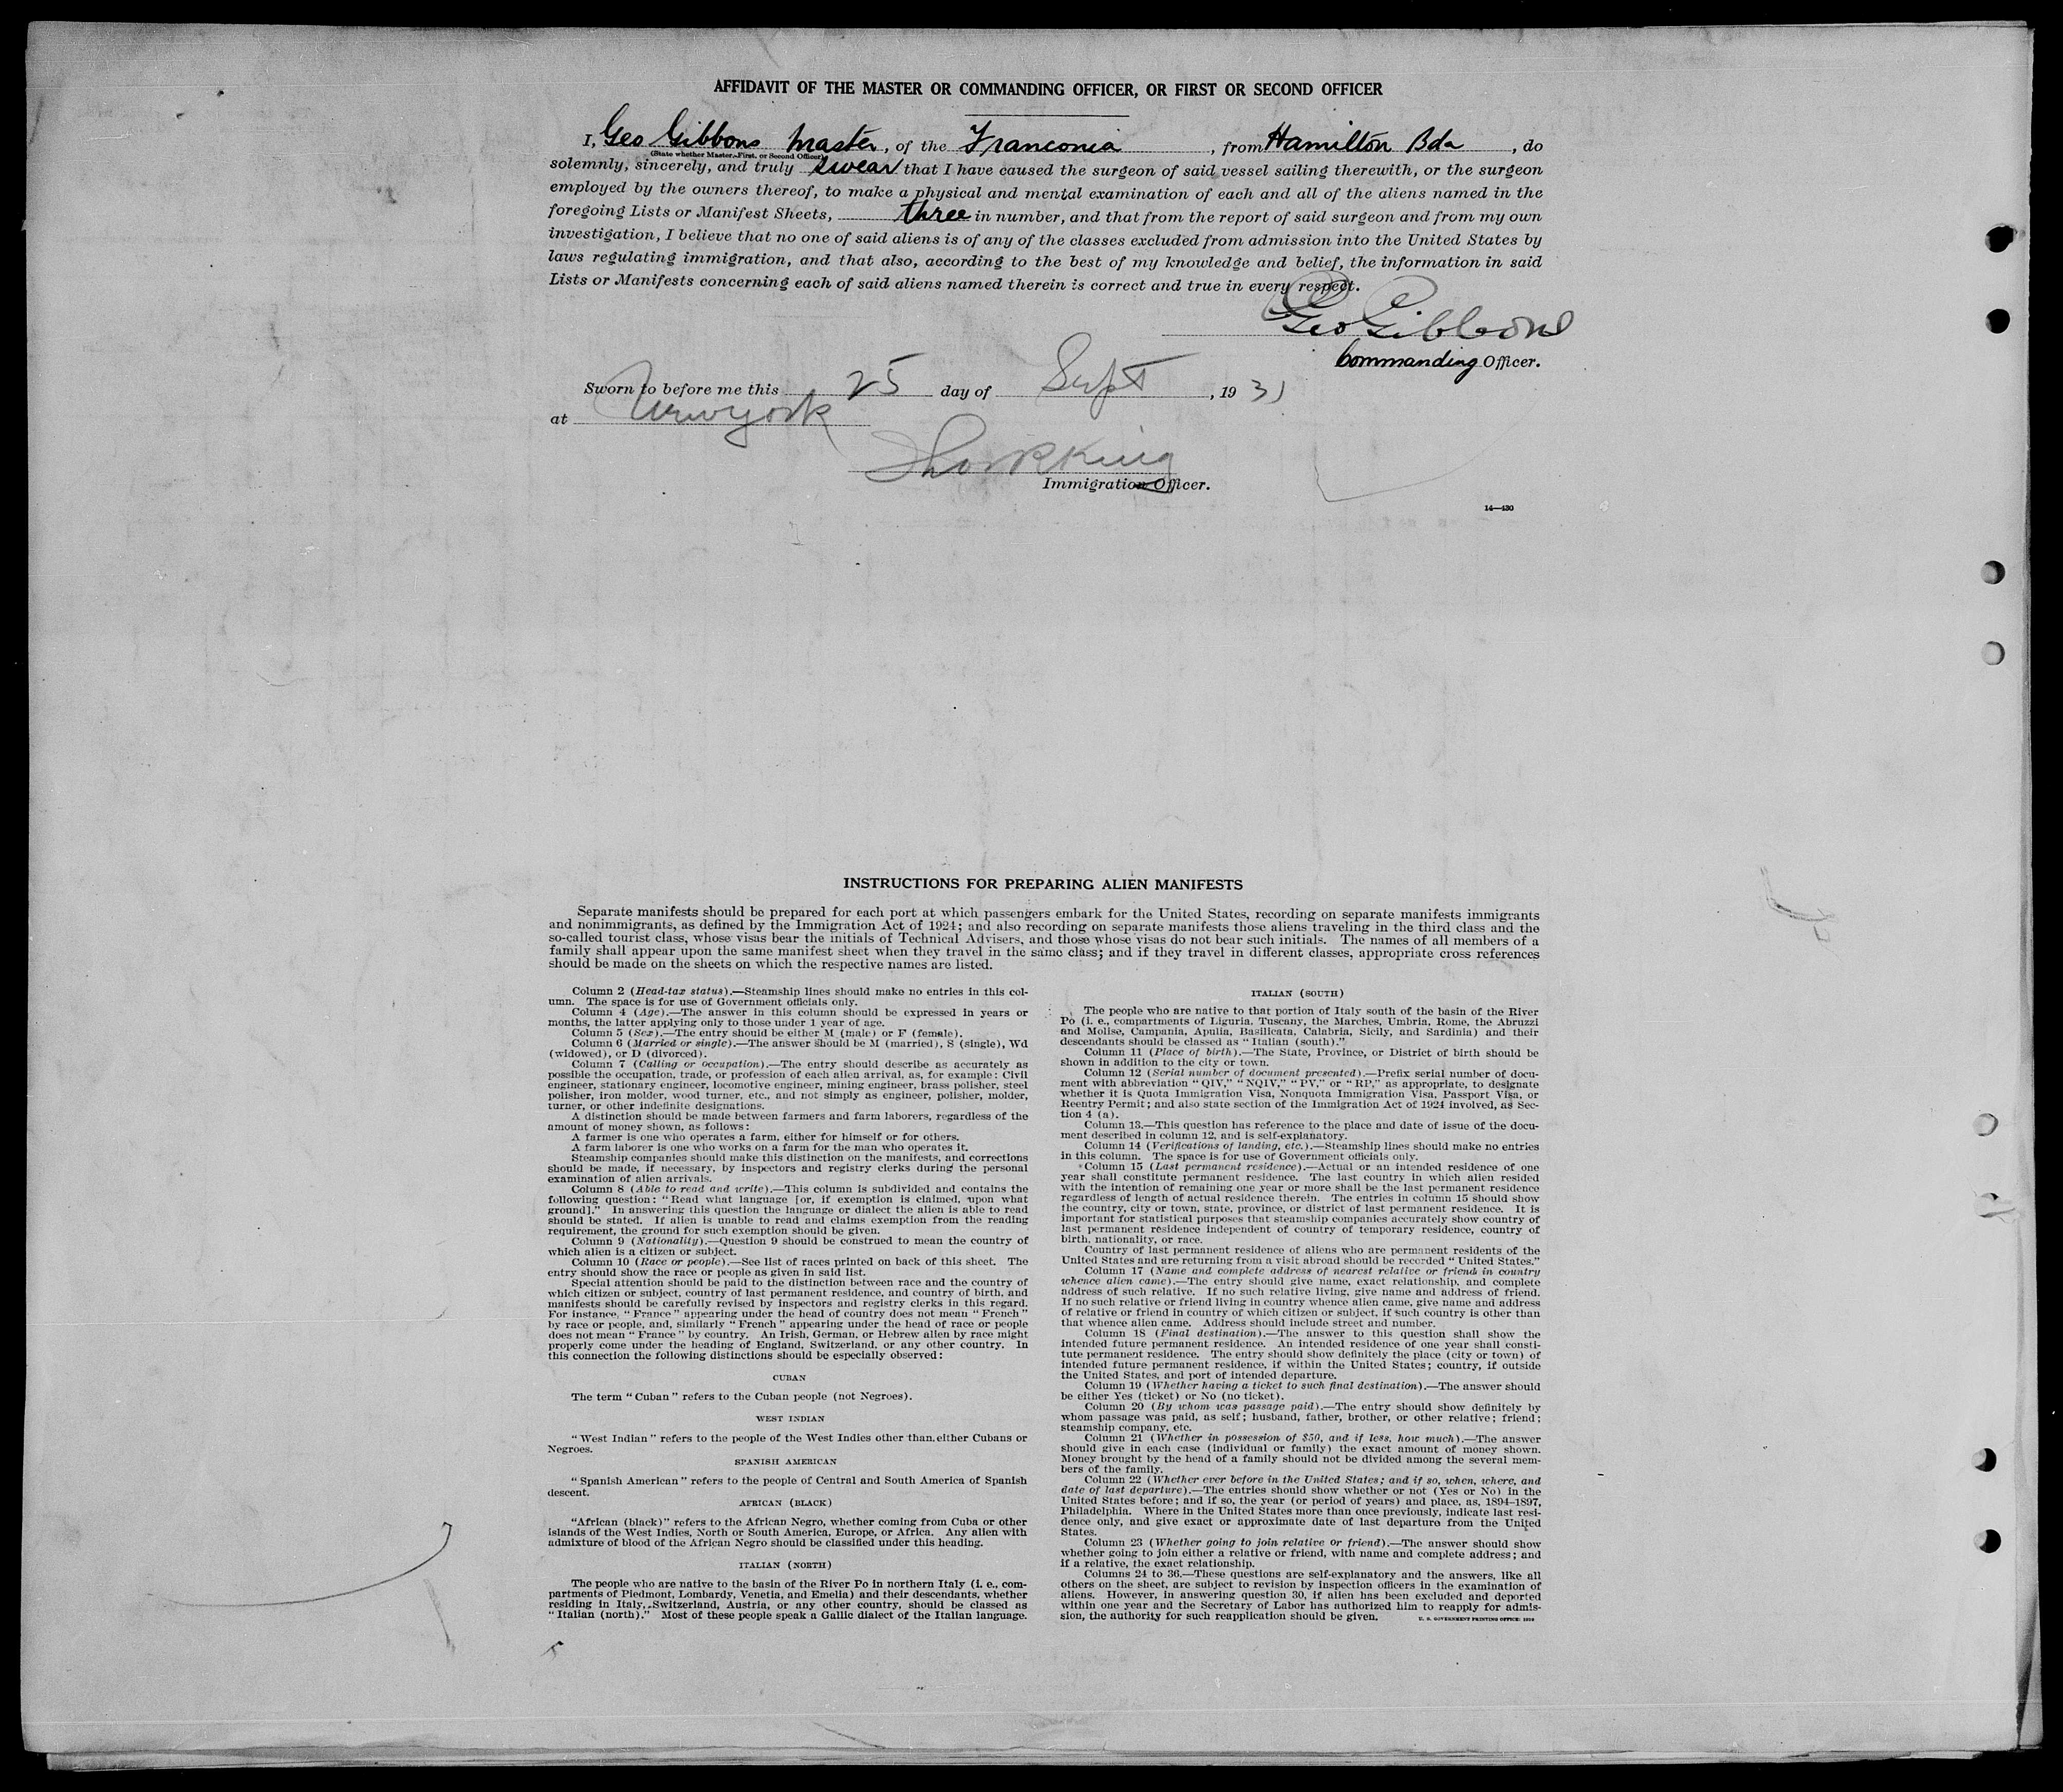 AFFIDAVIT OF THE MASTER OR COMMANDING OFFICER, OR FIRST OR SECOND OFFICER
I, Geo Gibbons Master, of the Franconia, from Hamilton Bda, do
(State whether Master, First, or Second Officer)
solemnly, sincerely, and truly swear that I have caused the surgeon of said vessel sailing therewith, or the surgeon
employed by the owners thereof, to make a physical and mental examination of each and all of the aliens named in the
foregoing Lists or Manifest Sheets, three in number, and that from the report of said surgeon and from my own
investigation, I believe that no one of said aliens is of any of the classes excluded from admission into the United States by
laws regulating immigration, and that also, according to the best of my knowledge and belief, the information in said
Lists or Manifests concerning each of said aliens named therein is correct and true in every respect.
Geo Gibbons
Commanding Officer.
Sworn to before me this 25 day of Sept, 1931
at New york
King
Immigration Officer.
14—430
INSTRUCTIONS FOR PREPARING ALIEN MANIFESTS
Separate manifests should be prepared for each port at which passengers embark for the United States, recording on separate manifests immigrants
and nonimmigrants, as defined by the Immigration Act of 1924; and also recording on separate manifests those aliens traveling in the third class and the
so-called tourist class, whose visas bear the initials of Technical Advisers, and those whose visas do not bear such initials. The names of all members of a
family shall appear upon the same manifest sheet when they travel in the same class; and if they travel in different classes, appropriate cross references
should be made on the sheets on which the respective names are listed.
Column 2 (Head-tax status).—Steamship lines should make no entries in this col-
umn. The space is for use of Government officials only.
Column 4 (Age).—The answer in this column should be expressed in years or
months, the latter applying only to those under 1 year of age.
Column 5 (Sex).—The entry should be either M (male) or F (female).
Column 6 (Married or single).—The answer should be M (married), S (single), Wd
(widowed), or D (divorced).
Column 7 (Calling or occupation).—The entry should describe as accurately as
possible the occupation, trade, or profession of each alien arrival, as, for example: Civil
engineer, stationary engineer, locomotive engineer, mining engineer, brass polisher, steel
polisher, iron molder, wood turner, etc., and not simply as engineer, polisher, molder,
turner, or other indefinite designations.
A distinction should be made between farmers and farm laborers, regardless of the
amount of money shown, as follows:
A farmer is one who operates a farm, either for himself or for others.
A farm laborer is one who works on a farm for the man who operates it.
Steamship companies should make this distinction on the manifests, and corrections
should be made, if necessary, by inspectors and registry clerks during the personal
examination of alien arrivals.
Column 8 (Able to read and write).—This column is subdivided and contains the
following question: "Read what language [or, if exemption is claimed, upon what
ground]." In answering this question the language or dialect the alien is able to read
should be stated. If alien is unable to read and claims exemption from the reading
requirement, the ground for such exemption should be given.
Column 9 (Nationality).—Question 9 should be construed to mean the country of
which alien is a citizen or subject.
Column 10 (Race or people).—See list of races printed on back of this sheet. The
entry should show the race or people as given in said list.
Special attention should be paid to the distinction between race and the country of
which citizen or subject, country of last permanent residence, and country of birth, and
manifests should be carefully revised by inspectors and registry clerks in this regard.
For instance, "France" appearing under the head of country does not mean "French"
by race or people, and, similarly "French" appearing under the head of race or people
does not mean "France" by country. An Irish, German, or Hebrew alien by race might
properly come under the heading of England, Switzerland, or any other country. In
this connection the following distinctions should be especially observed:
CUBAN
The term "Cuban" refers to the Cuban people (not Negroes).
WEST INDIAN
"West Indian" refers to the people of the West Indies other than either Cubans or
Negroes.
SPANISH AMERICAN
"Spanish American" refers to the people of Central and South America of Spanish
descent.
AFRICAN (BLACK)
"African (black)" refers to the African Negro, whether coming from Cuba or other
islands of the West Indies, North or South America, Europe, or Africa. Any alien with
admixture of blood of the African Negro should be classified under this heading.
ITALIAN (NORTH)
The people who are native to the basin of the River Po in northern Italy (i. e., com-
partments of Piedmont, Lombardy, Venetia, and Emelia) and their descendants, whether
residing in Italy, Switzerland, Austria, or any other country, should be classed as
"Italian (north)." Most of these people speak a Gallic dialect of the Italian language.
ITALIAN (SOUTH)
The people who are native to that portion of Italy south of the basin of the River
Po (i. e., compartments of Liguria, Tuscany, the Marches, Umbria, Rome, the Abruzzi
and Molise, Campania, Apulia, Basilicata, Calabria, Sicily, and Sardinia) and their
descendants should be classed as "Italian (south)."
Column 11 (Place of birth).—The State, Province, or District of birth should be
shown in addition to the city or town.
Column 12 (Serial number of document presented).—Prefix serial number of docu-
ment with abbreviation "QIV," "NQIV," "PV," or "RP," as appropriate, to designate
whether it is Quota Immigration Visa, Nonquota Immigration Visa, Passport Visa, or
Reentry Permit; and also state section of the Immigration Act of 1924 involved, as Sec-
tion 4 (a).
Column 13.—This question has reference to the place and date of issue of the docu-
ment described in column 12, and is self-explanatory.
Column 14 (Verifications of landing, etc.).—Steamship lines should make no entries
in this column. The space is for use of Government officials only.
Column 15 (Last permanent residence).—Actual or an intended residence of one
year shall constitute permanent residence. The last country in which alien resided
with the intention of remaining one year or more shall be the last permanent residence
regardless of length of actual residence therein. The entries in column 15 should show
the country, city or town, state, province, or district of last permanent residence. It is
important for statistical purposes that steamship companies accurately show country of
last permanent residence independent of country of temporary residence, country of
birth, nationality, or race.
Country of last permanent residence of aliens who are permanent residents of the
United States and are returning from a visit abroad should be recorded "United States."
Column 17 (Name and complete address of nearest relative or friend in country
whence alien came).—The entry should give name, exact relationship, and complete
address of such relative. If no such relative living, give name and address of friend.
If no such relative or friend living in country whence alien came, give name and address
of relative or friend in country of which citizen or subject, if such country is other than
that whence alien came. Address should include street and number.
Column 18 (Final destination).—The answer to this question shall show the
intended future permanent residence. An intended residence of one year shall consti-
tute permanent residence. The entry should show definitely the place (city or town) of
intended future permanent residence, if within the United States; country, if outside
the United States, and port of intended departure.
Column 19 (Whether having a ticket to such final destination).—The answer should
be either Yes (ticket) or No (no ticket).
Column 20 (By whom was passage paid).—The entry should show definitely by
whom passage was paid, as self; husband, father, brother, or other relative; friend;
steamship company, etc.
Column 21 (Whether in possession of $50, and if less, how much).—The answer
should give in each case (individual or family) the exact amount of money shown.
Money brought by the head of a family should not be divided among the several mem-
bers of the family.
Column 22 (Whether ever before in the United States; and if so, when, where, and
date of last departure).—The entries should show whether or not (Yes or No) in the
United States before; and if so, the year (or period of years) and place, as, 1894–1897,
Philadelphia. Where in the United States more than once previously, indicate last resi-
dence only, and give exact or approximate date of last departure from the United
States.
Column 23 (Whether going to join relative or friend).—The answer should show
whether going to join either a relative or friend, with name and complete address; and
if a relative, the exact relationship.
Columns 24 to 36.—These questions are self-explanatory and the answers, like all
others on the sheet, are subject to revision by inspection officers in the examination of
aliens. However, in answering question 30, if alien has been excluded and deported
within one year and the Secretary of Labor has authorized him to reapply for admis-
sion, the authority for such reapplication should be given.
U. S. GOVERNMENT PRINTING OFFICE: